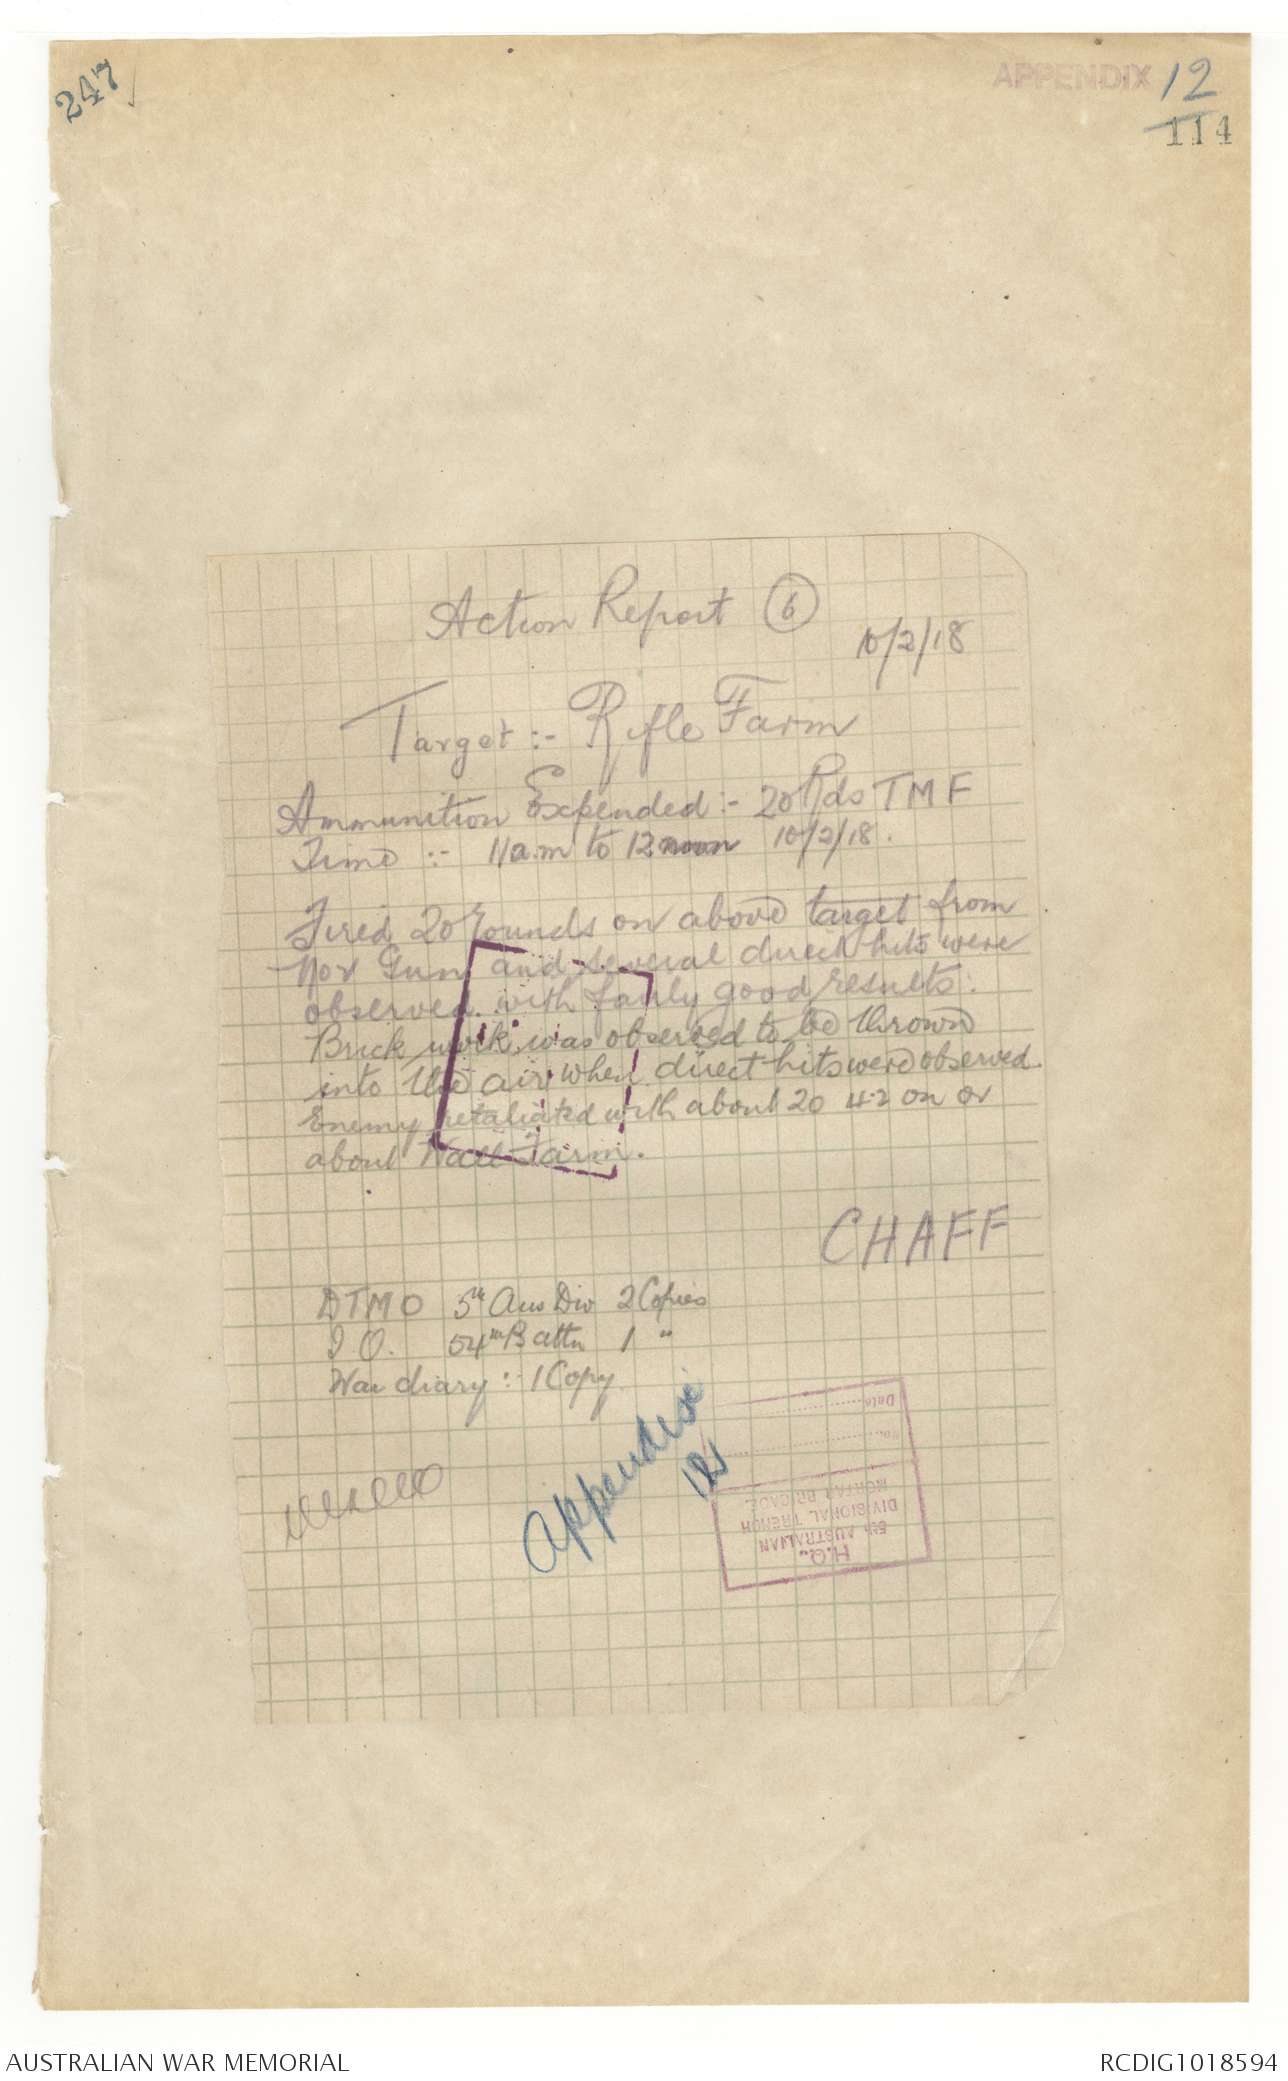 247
APPENDIX 12
114
Action Report 6
10/2/18
Target :- Rifle Farm
Ammunition Expended :- 20 Rds TMF
Time :- 11 a.m to 12 noon 10/2/18.
Fired 20 rounds on above target from
Gun and several direct hits were
observed with fairly good results.
Brick work was observed to be thrown
into the air when direct hits were observed.
Enemy retaliated with about 20 4.2 on or
about Wall Farm.
CHAFF
DTMO 5th Aus Div 2 Copies
I O. 54th Battn 1 "
War diary :- 1 Copy
Appendix
12
Date
No.
H.Q.,
5th AUSTRALIAN
DIVISIONAL TRENCH
MORTAR BRIGADE.
AUSTRALIAN WAR MEMORIAL
RCDIG1018594